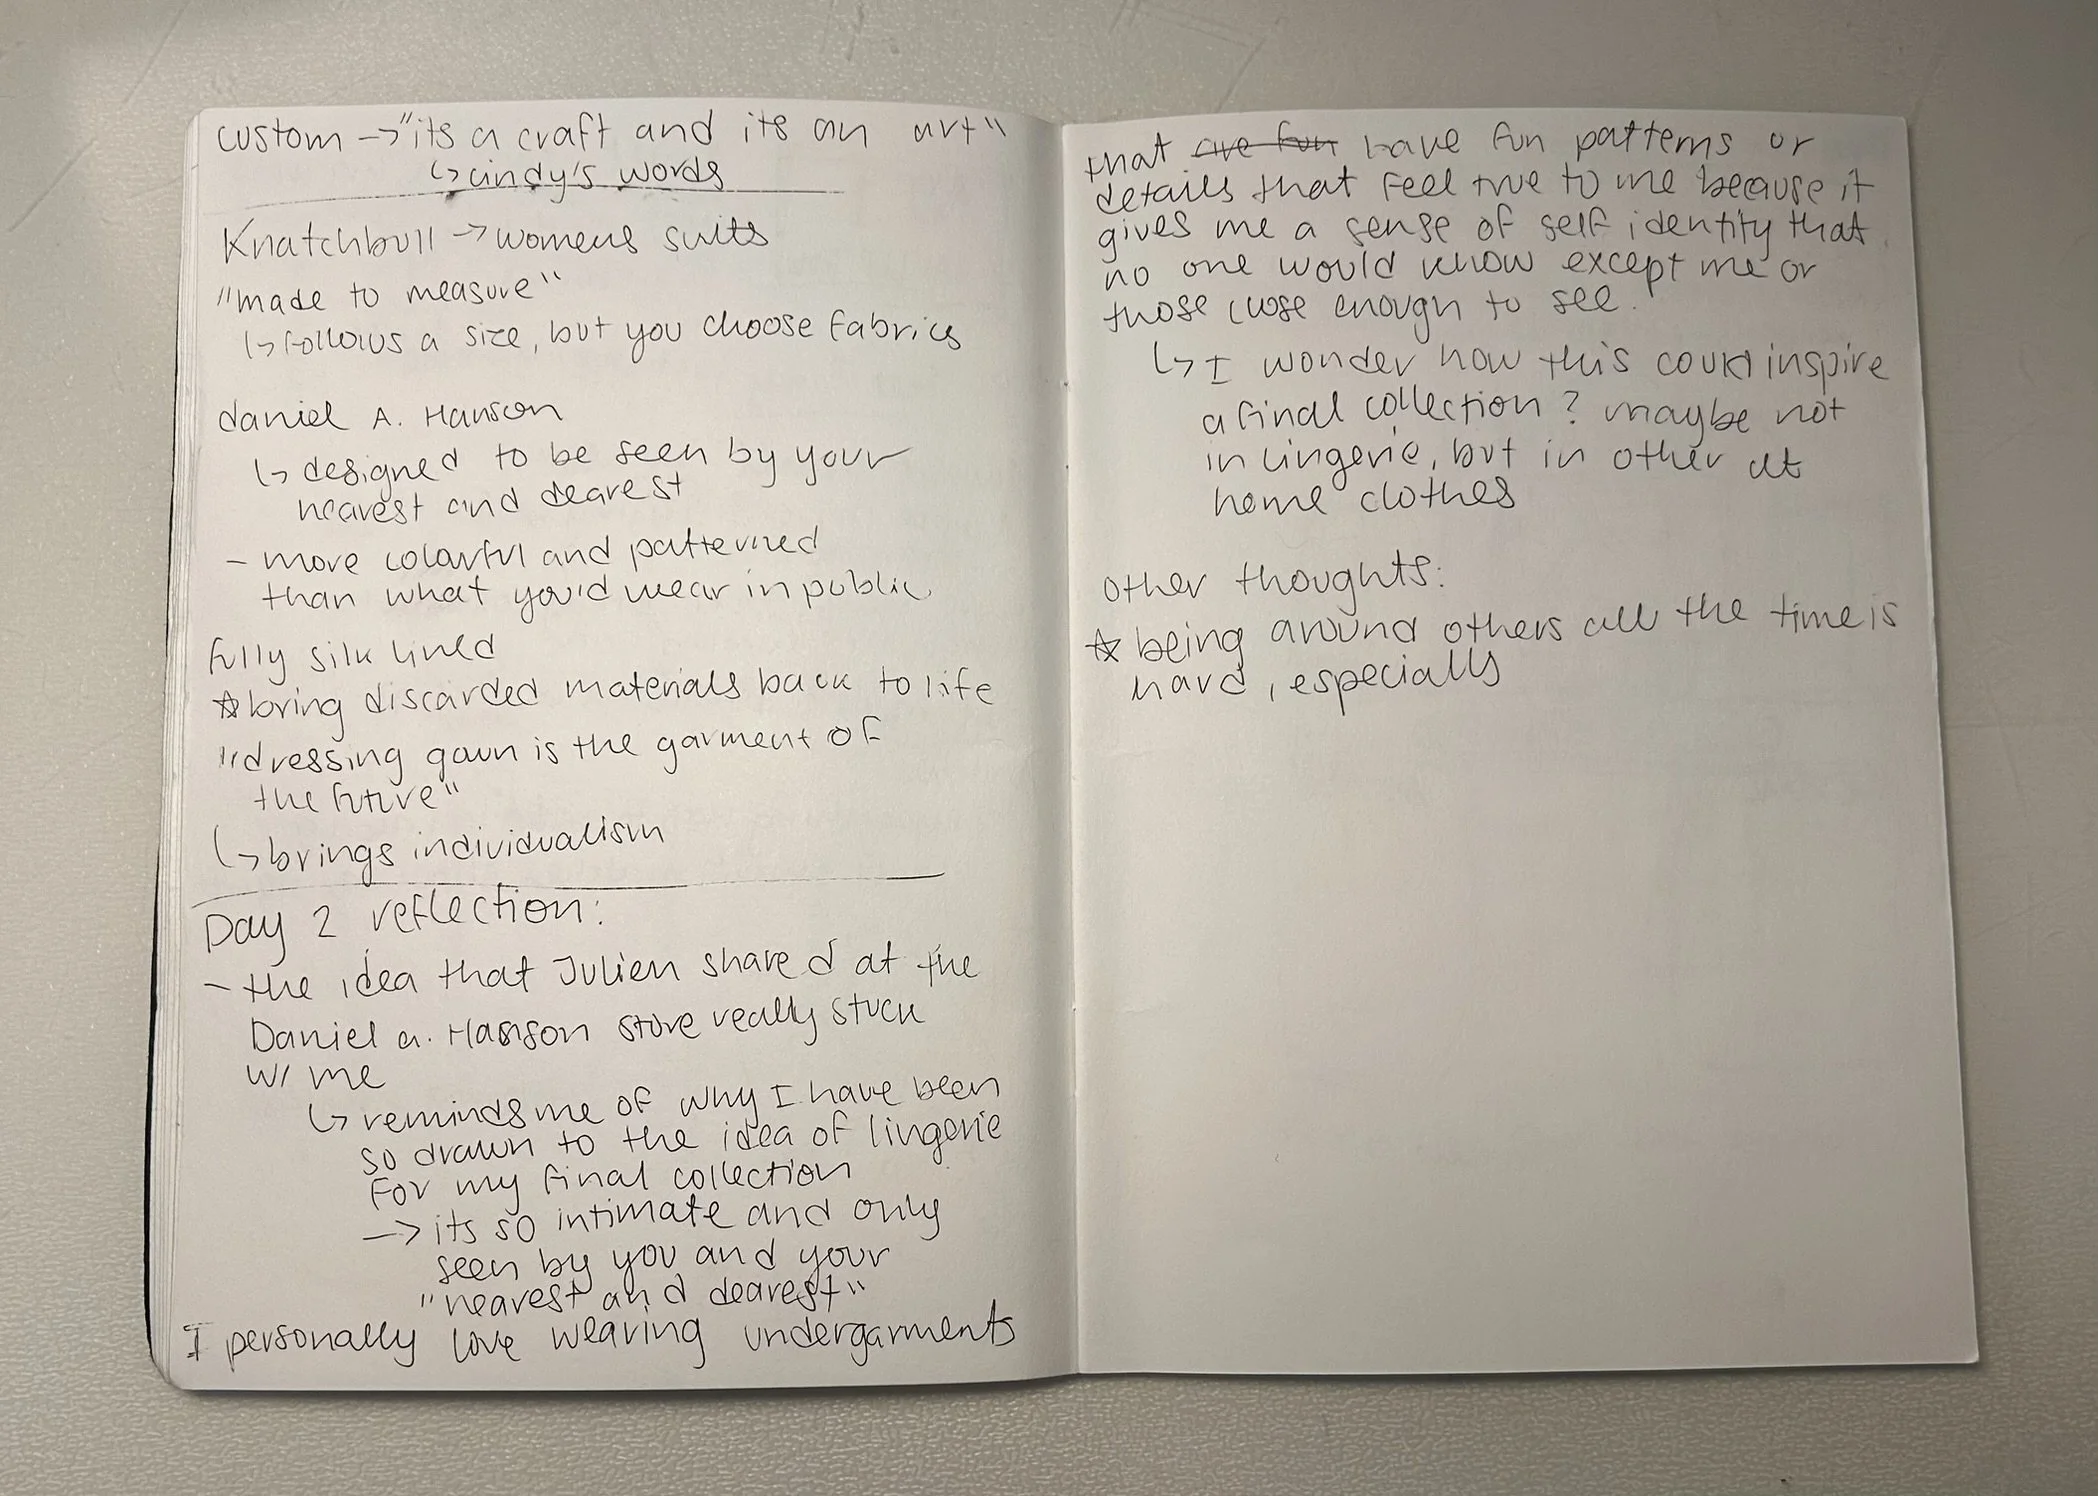 custom → "its a craft and its an art"
↳ cindy's words
Knatchbull → womens suits
"made to measure"
↳ follows a size, but you choose fabrics
daniel A. Hanson
↳ designed to be seen by your
nearest and dearest
- more colorful and patterned
than what you'd wear in public
fully silk lined
☆ bring discarded materials back to life
"dressing gown is the garment of
the future"
↳ brings individualism
Day 2 reflection:
- the idea that Julien shared at the
Daniel a. Hanson store really stuck
w/ me
↳ reminds me of why I have been
so drawn to the idea of lingerie
for my final collection
→ its so intimate and only
seen by you and your
"nearest and dearest"
I personally love wearing undergarments
that are fun have fun patterns or
details that feel true to me because it
gives me a sense of self identity that
no one would know except me or
those close enough to see.
↳ I wonder how this could inspire
a final collection? maybe not
in lingerie, but in other at
home clothes
other thoughts:
☆ being around others all the time is
hard, especially